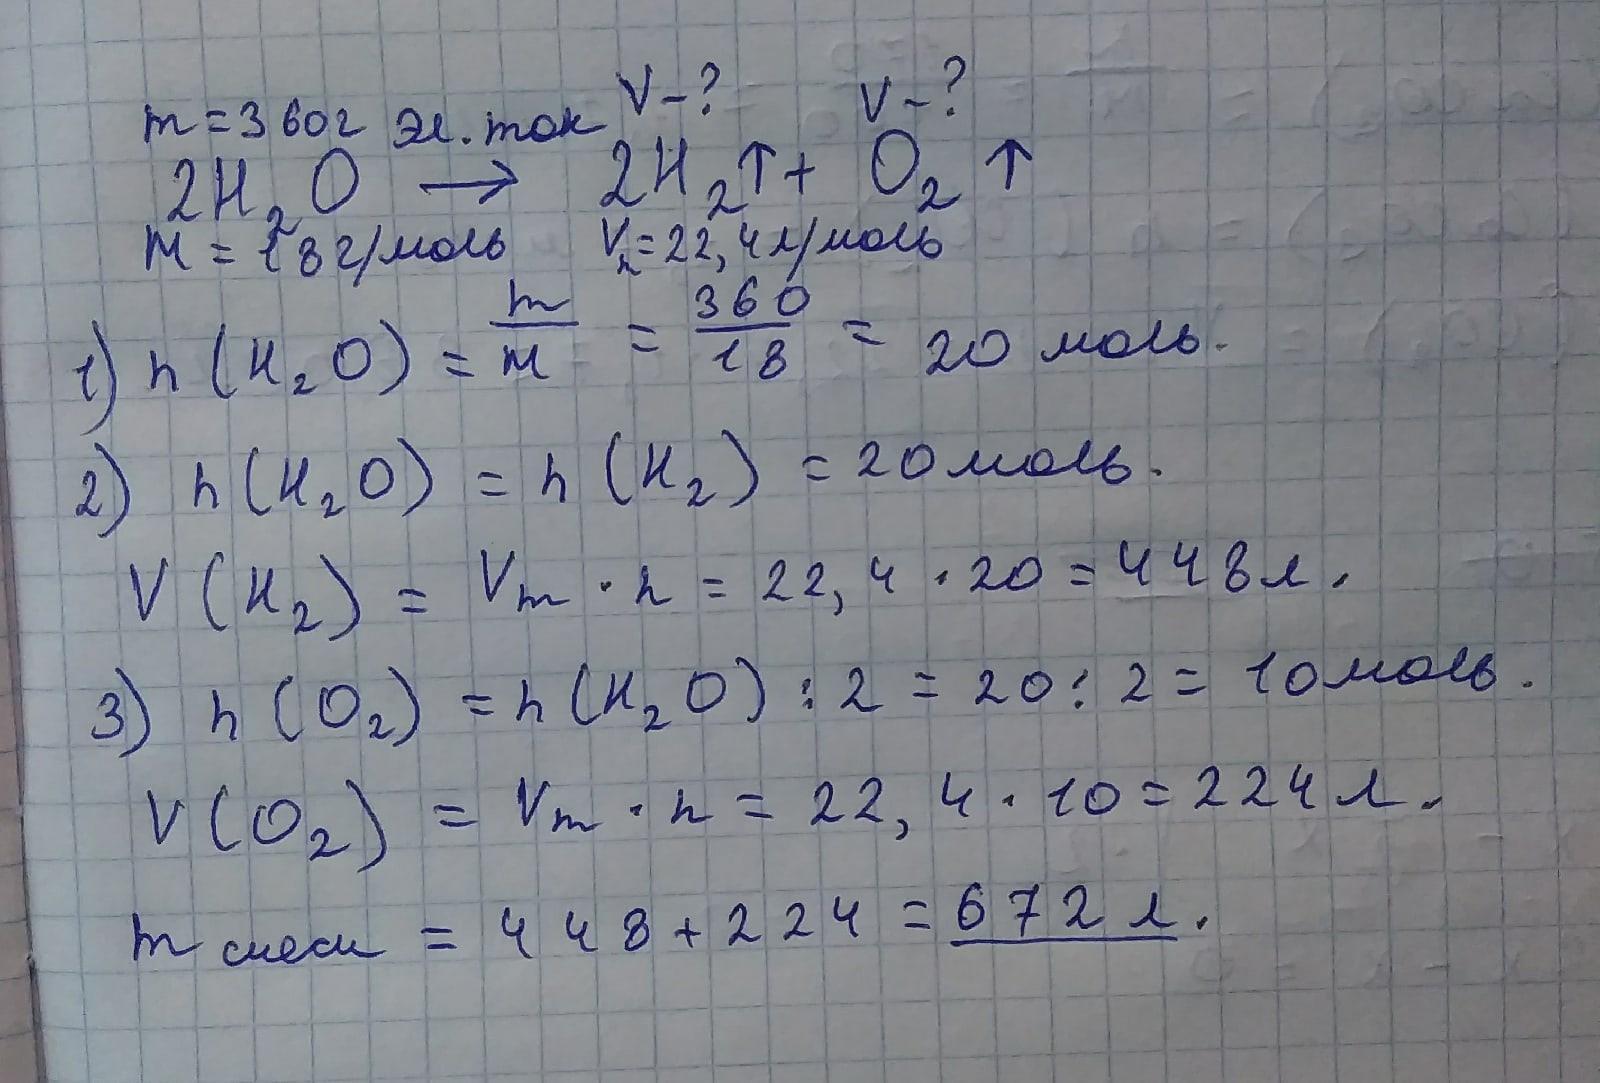 m=360г эл. ток V-? V-?
2H₂O → 2H₂↑ + O₂↑
M = 18 г/моль Vₙ=22,4 л/моль
1) n (H₂O) = m/M = 360/18 = 20 моль.
2) n (H₂O) = n (H₂) = 20 моль.
V (H₂) = Vm · n = 22,4 · 20 = 448 л.
3) n (O₂) = n (H₂O) : 2 = 20 : 2 = 10 моль.
V (O₂) = Vm · n = 22,4 · 10 = 224 л.
m смеси = 448 + 224 = 672 л.